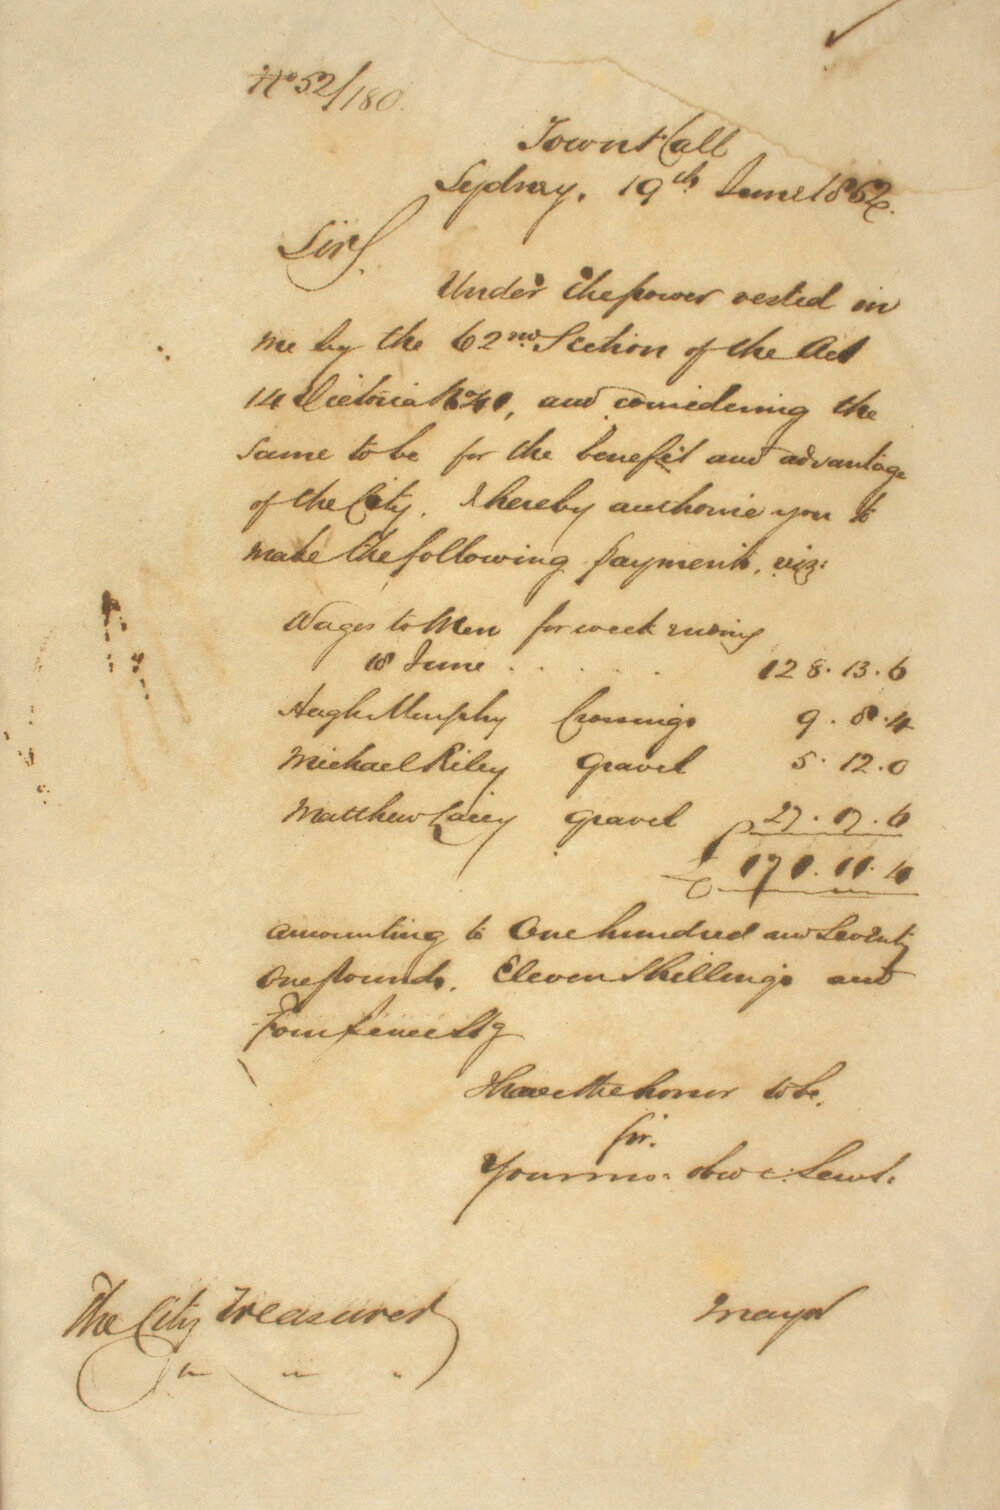 No 52/180.
Town Hall
Sydney. 19th June 1852.
Sir,
Under the power vested in
me by the 62nd Section of the Act
14 Victoria No 41, and considering the
same to be for the benefit and advantage
of the City. I hereby authorise you to
make the following payments, viz:
Wages to Men for week ending
18 June . . . . . 128. 13. 6
Hugh Murphy Crossings 9. 8. 4
Michael Riley Gravel 5. 12. 0
Matthew Lacey Gravel 27. 17. 6
£ 171. 11. 4
amounting to One hundred and Seventy
One pounds. Eleven Shillings and
Four pence Stg
I have the honor to be,
Sir.
Your mo: obdt: Servt.
The City Treasurer
Mayor